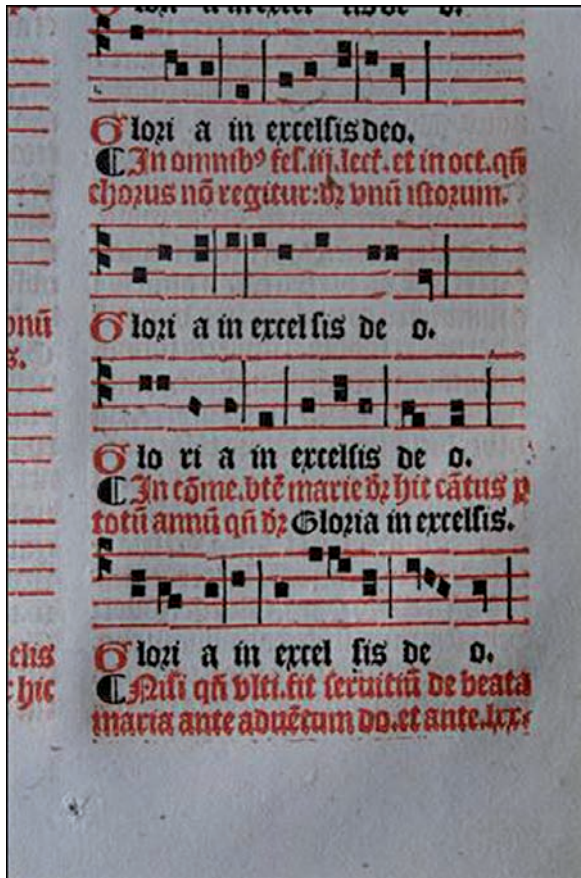 Glori a in excelsis de o.
Glori a in excelſis deo.
¶ In omnibꝰ feſ.iij.lect.et in oct.qn̄
chorus nō regitur:dꝛ vnū iſtorum.
Glori a in excelſis de o.
Glo ri a in excelſis de o.
¶ In cōme.btē marie dꝛ hic cātus ꝑ
totū annū qn̄ dꝛ Gloria in excelſis.
Glori a in excel ſis de o.
¶ Niſi qn̄ vlti.fit ſeruitiū de beata
maria ante aduētum do.et ante.lxx.
vnū
s.
elis
hic